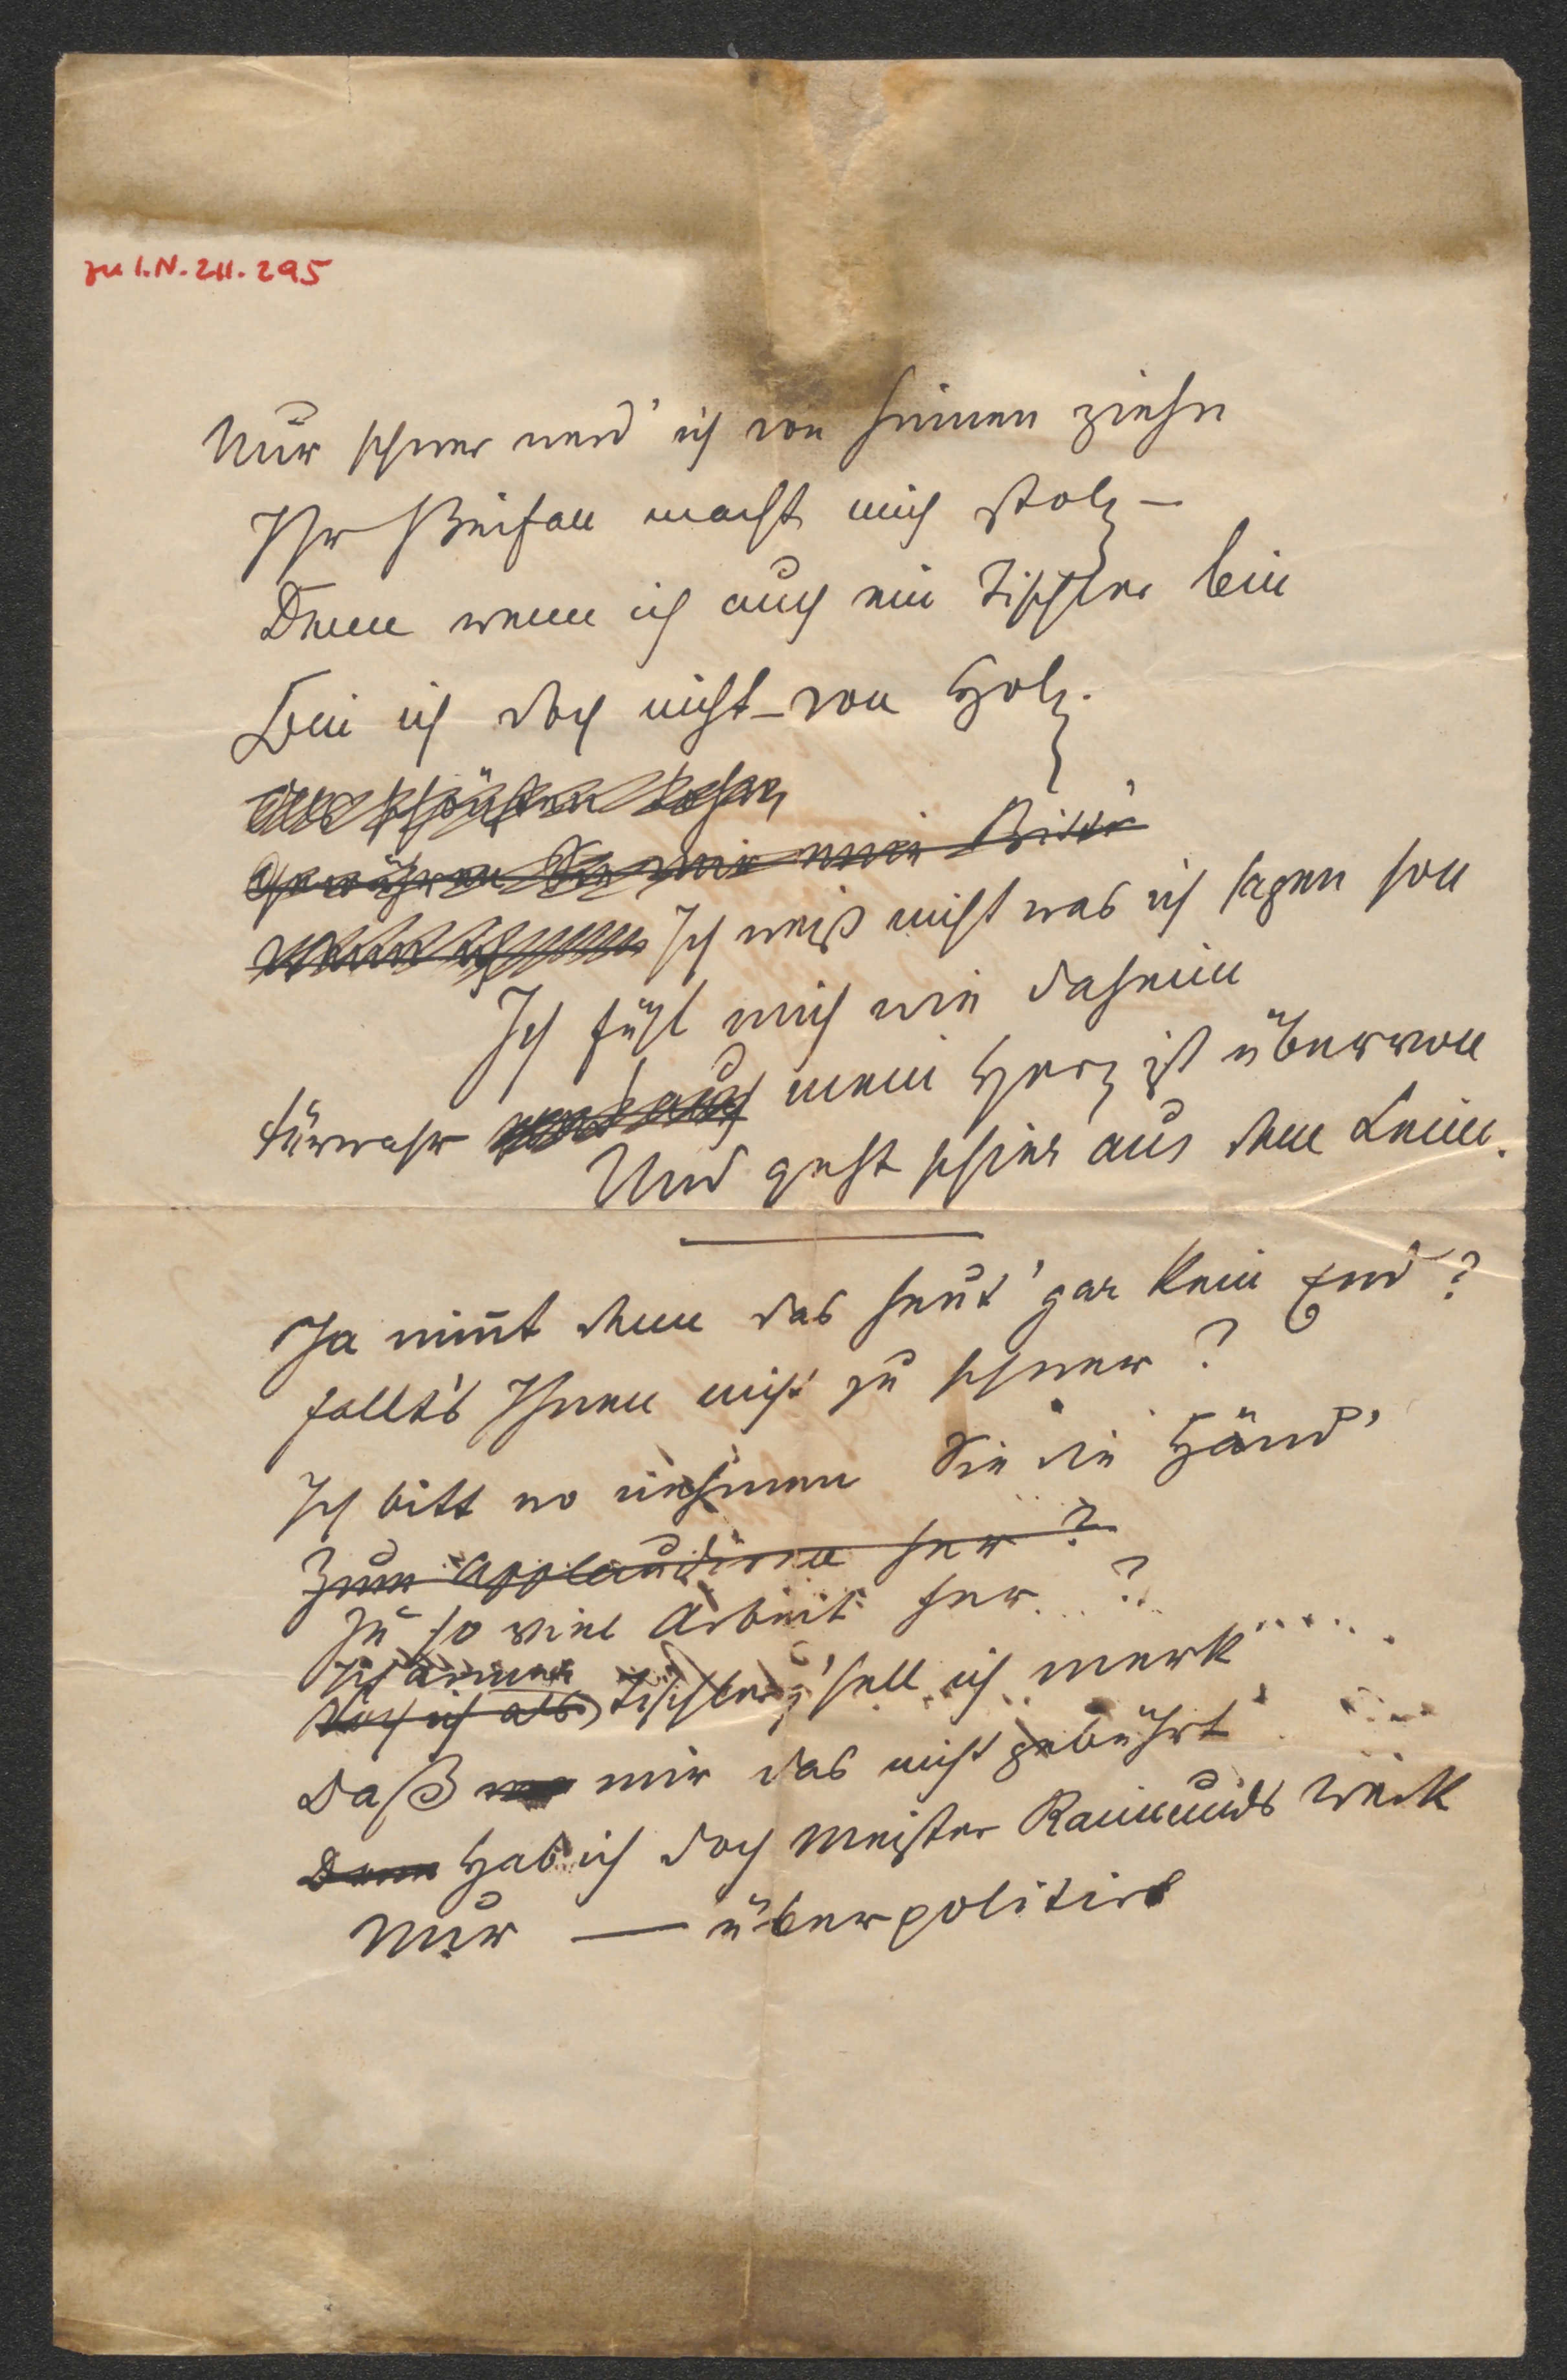 zu I.N. 211.295
Nur schwer werd' ich von hinnen ziehn
Ihr Beifall macht mich stolz –
Denn wenn ich auch ein Tischler bin
Bin ich doch nicht – von Holz.
Gewähren Sie mir meine Bitte
Ich weiß nicht was ich sagen soll
Ich fühl mich wie daheim
fürwahr mein Herz ist übervoll
Und geht schier aus dem Leim.
Ja nim̄t denn das heut' gar kein End?
fallt's Ihnen nicht zu schwer?
Ich bitt wo nehmen Sie die Händ'
Zum applaudiren her?
Zu so viel Arbeit her?
Ich armer
Doch ich als Tischlerg'sell ich merk
Daß mir das nicht gebührt
Denn Hab ich doch Meister Raimunds Werk
Nur — überpolitirt